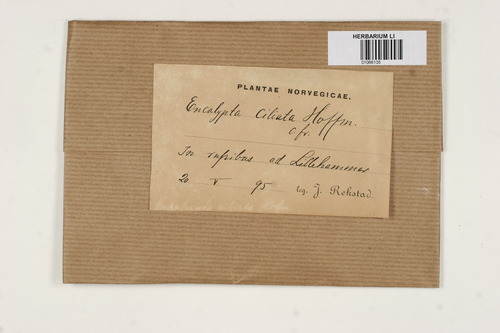 HERBARIUM LI
01066135
PLANTAE NORVEGICAE.
Encalypta ciliata Hoffm.
c. fr.
In rupibus ad Lillehammer
20 V 95 leg. J. Rekstad.